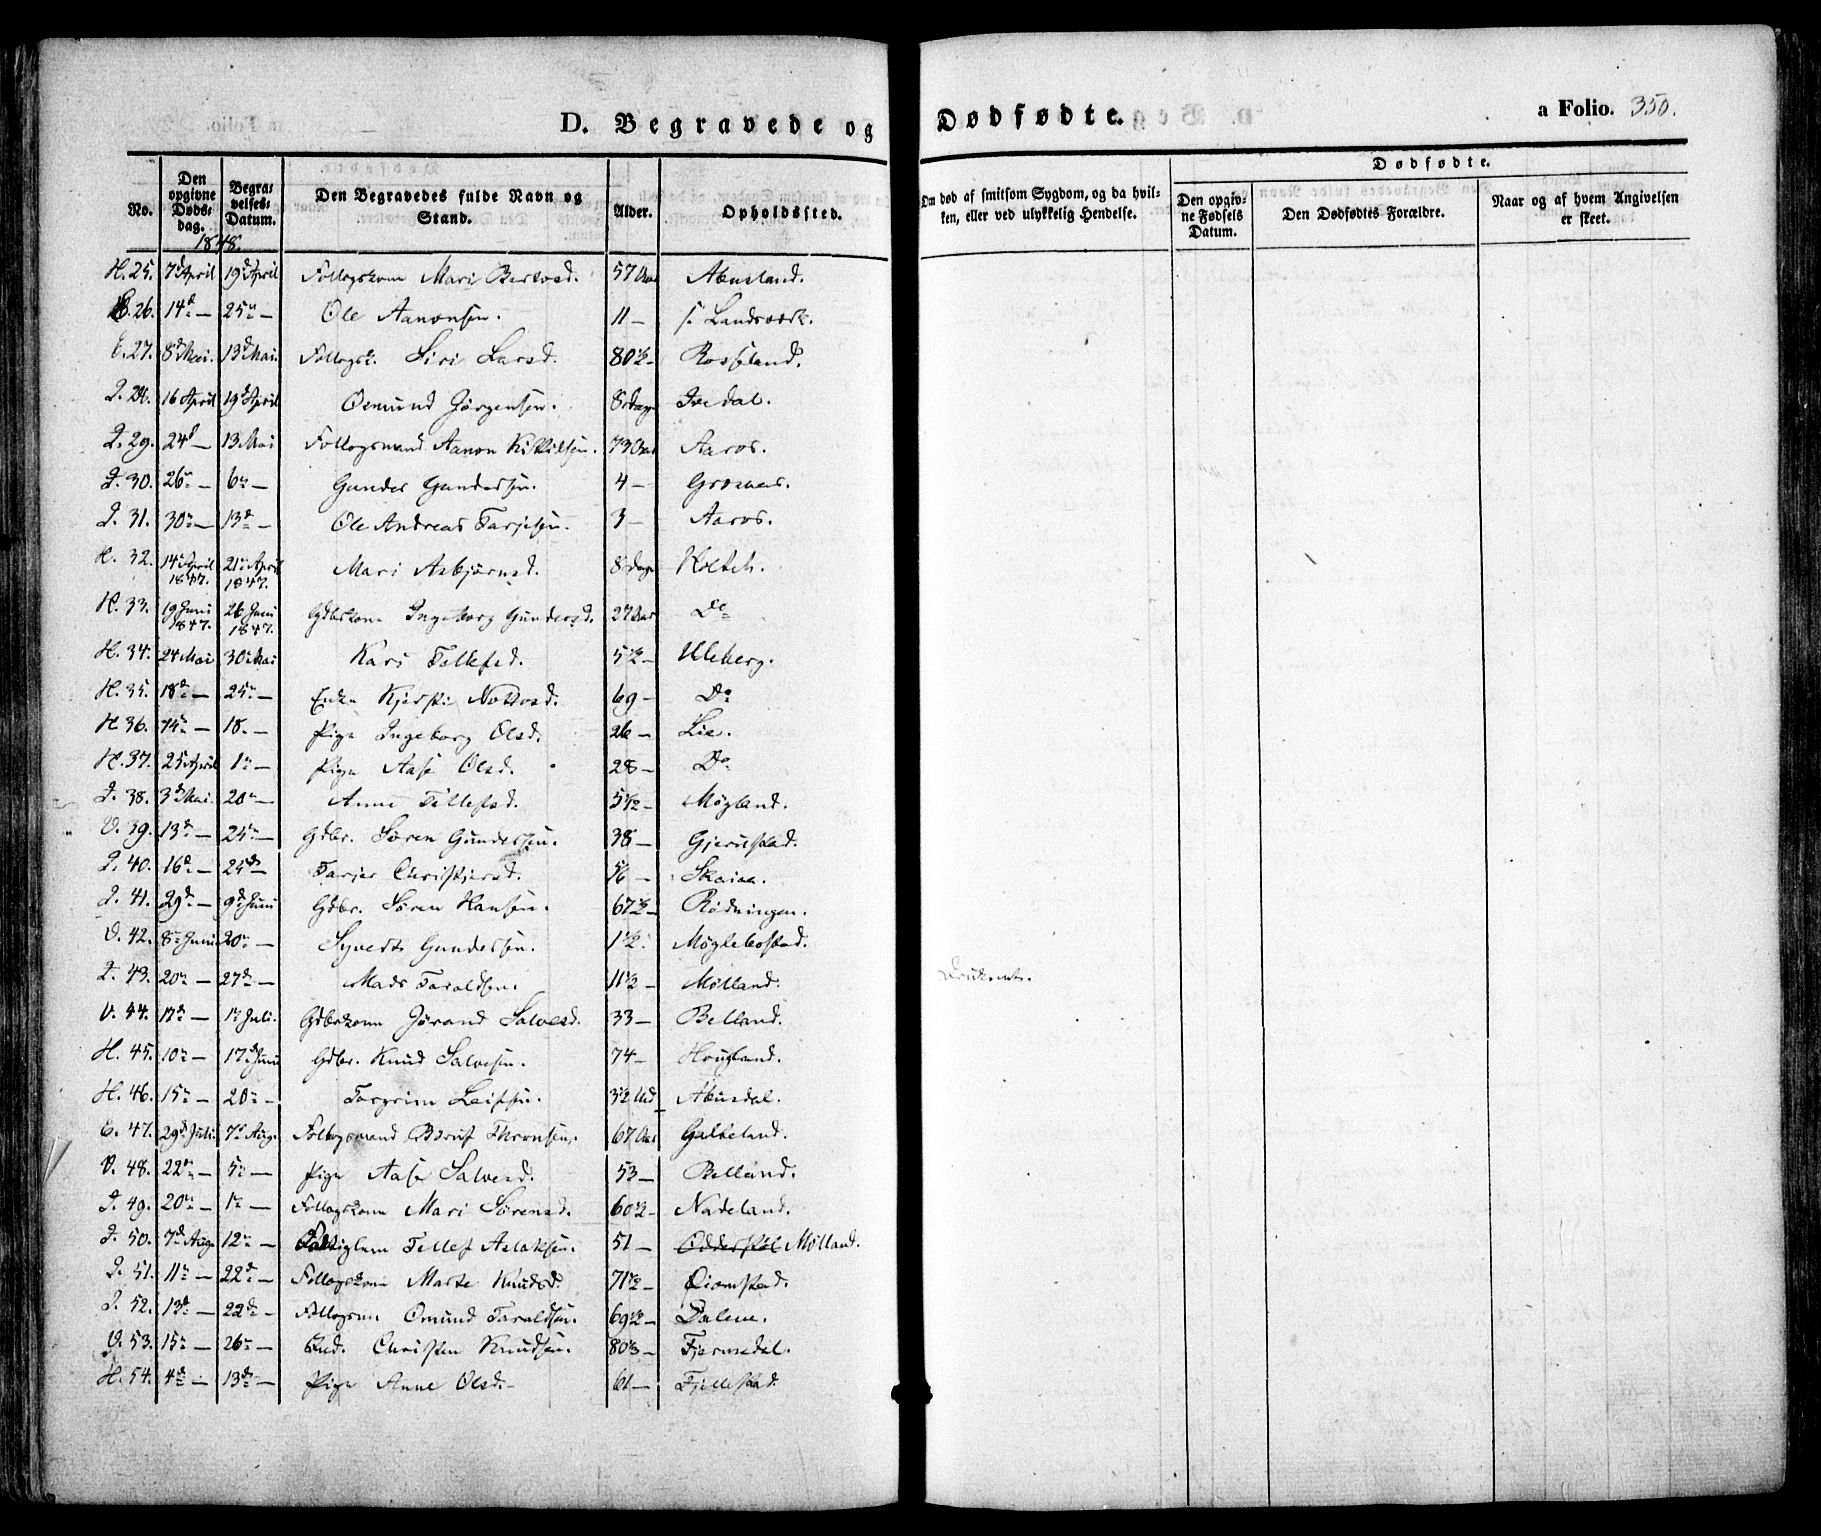 D. Begravede og Dødfødte. a Folio. 350.
No. Den opgivne Dødsdag. Begravelses-Datum. Den Begravedes fulde Navn og Stand. Alder. Opholdssted. Om død af smitsom Sygdom, og da hvilken, eller ved ulykkelig Hendelse. Dødfødte. Den opgivne Fødsels Datum. Den Dødfødtes Forældre. Naar og af hvem Angivelsen er skeet.
1848.
H. 25. 7d April 19d April Follogskone Mari 57 Aar Abusland.
26. 14d — 25n — Ole Aanonsen. 11 — Landsverk.
E. 27. 8d Mai. 13d Mai. Follogsk. Siri Larsd. 80½ — Rosseland.
16 April 19d April Osmund Jørgensen. 8 Dage Ivedal.
29. 24d — 13 Mai Follogsmand Aanon Kittilsen. 73 Aar Aaros.
30. 26n — 6n — Gunder Gundersen. 4 —
31. 30n — 13d — Ole Andreas Tarjesen. 3 — Aaros.
H. 32. 14n April 1847. 21n April 1847. Mari Asbjørnsd. 8 Dage Holteh.
H. 33. 19 Juni 1847. 26 Juni 1847. Gdbrkone Ingeborg Gundersd. 27 Aar Do
H. 34. 24 Mai 30n Mai Kari Tellefsd. 5½ — Uleberg.
H. 35. 18d — 25n — Enke Kjersti 69 — Do
H. 36. 14n — 18 — Pige Ingeborg Olsd. 26 — Lie.
H. 37. 25 April 1n — Pige Aase Olsd. 28 — Do
38. 3d Mai. 20n — Anne Tellefsd. 5½ — Møgland.
V. 39. 13d — 25n — Gdbr. Søren Gundersen. 38 — Gjerulstad.
40. 16d — 25d — Tarjer Christensd. Skaiaa.
41. 29d — 9d Juni Gdbr. Søren Hansen. 67½ — Rødningen.
V. 42. 8n Juni 20n — Syverts Gundersen. 1½. Møglebostad.
43. 20n — 27d — Mads Taraldsen. 11½ — Mølland.
V. 44. 17d — 1n Juli. Gdbrkone Jørand Salvesd. 33 — Belland.
H. 45. 10n — 17d Juni Gdbr. Knud Salvesen. 74 — Hougland.
H. 46. 15n — 20n — Torgrim Leifsen. 3½ Abusdal.
E. 47. 29d Juli. 7d Aug. Follogsmand Thronsen. 67 Aar Galteland.
V. 48. 22n — 5n — Pige Aase Salvesd. 53 — Belland.
49. 20n — 1n — Follogskone Mari Sørensd. 60½ — Nadeland.
50. 7d Aug. 12n — Tellef Aslaksen. 51 — Mølland.
51. 11n — 22d — Follogskone Marte Knudsd. 71½ —
52. 13d — 22d — Follogsm. Omund Taraldsen. 69½ — Dalene.
V. 53. 15n — 26n — Christen Knudsen. 80⅓ — Fjermedal.
H. 54. 4d — 13d — Pige Anne Olsd. 61 — Fjellestad.